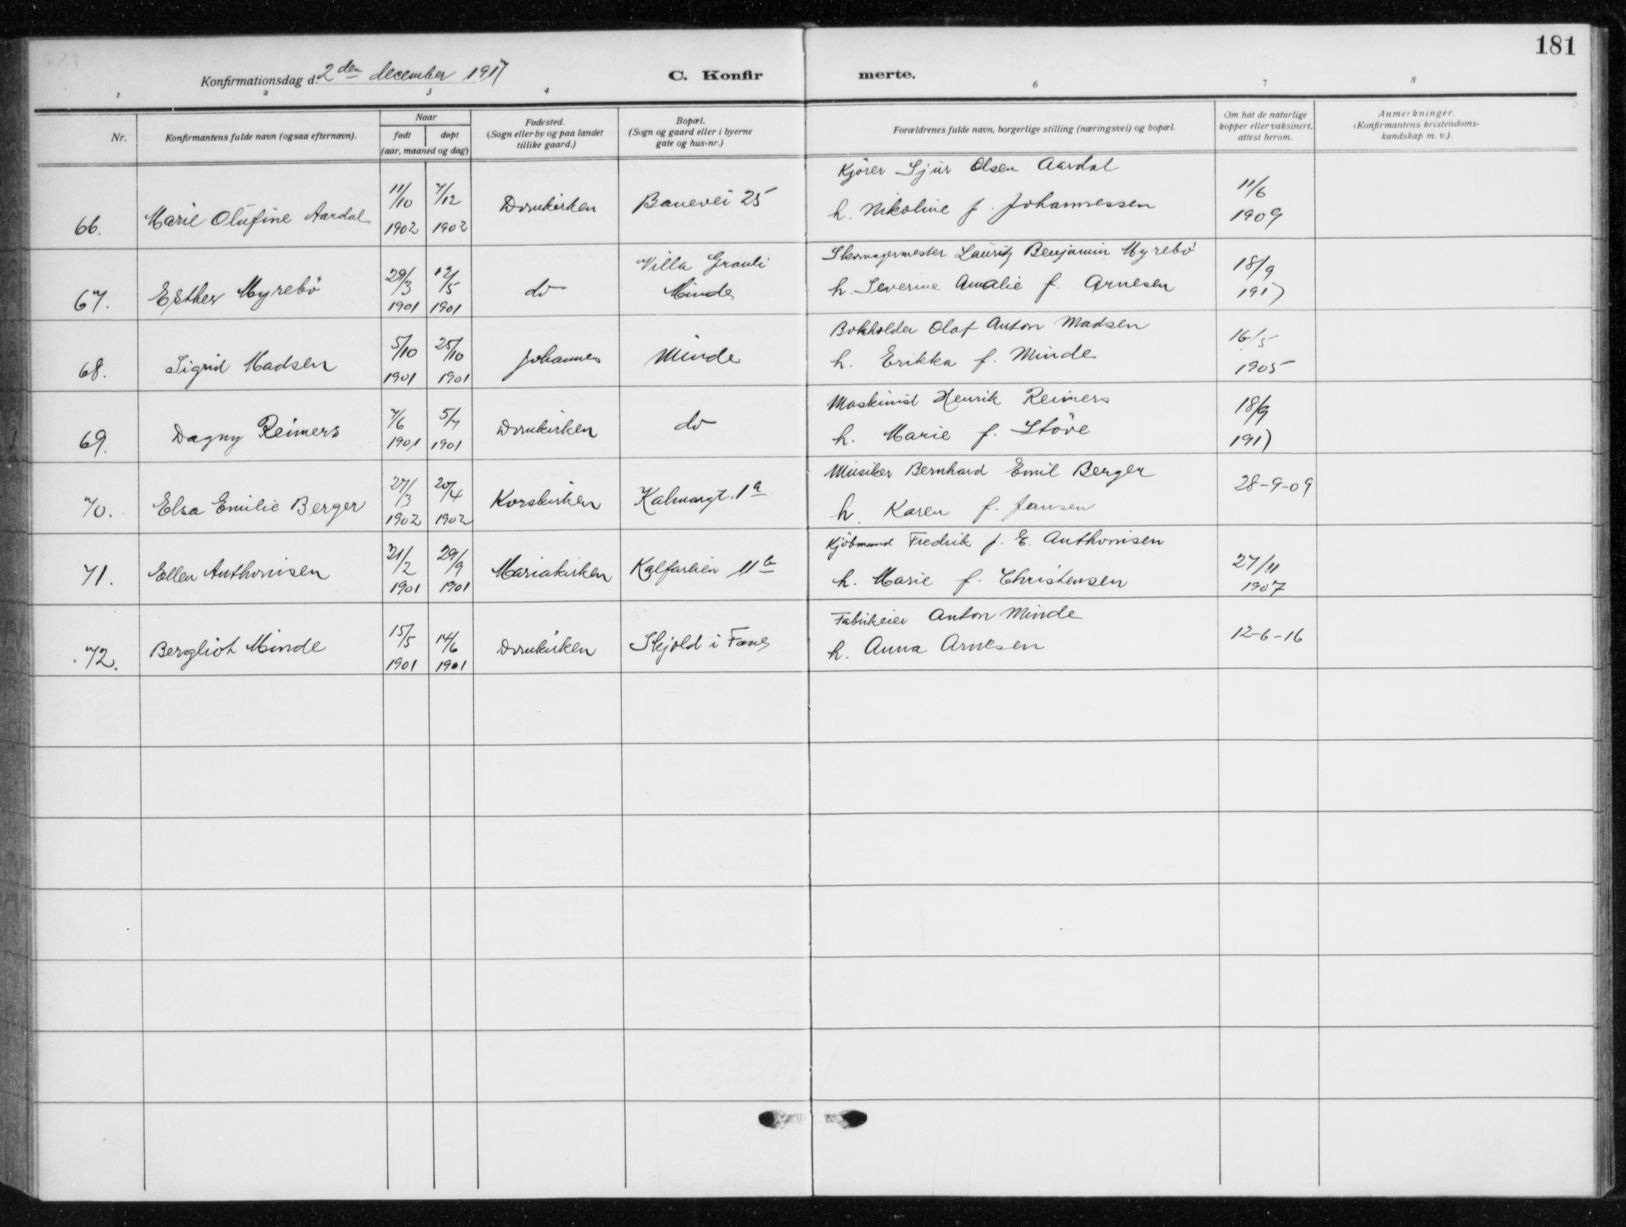 181
Konfirmationsdag d. 2den december 1917
C. Konfir merte.
1 2 3 4 6 7 8
Nr.
Konfirmantens fulde navn (ogsaa efternavn).
Naar
født
døpt
(aar, maaned og dag)
Fødested.
(Sogn eller by og paa landet
tillike gaard.)
Bopæl.
(Sogn og gaard eller i byerne
gate og hus-nr.)
Forældrenes fulde navn, borgerlige stilling (næringsvei) og bopæl.
Om hat de naturlige
kopper eller vaksinert,
attest herom.
Anmerkninger.
(Konfirmantens kristendoms-
kundskap m. v.).
Kjører Sjur Olsen Aardal
66. Marie Olufine Aardal 11/10 1902 7/12 1902 Domkirken Banevei 25 h. Nikoline f. Johannessen 11/6 1909
Villa Granli Skomagermester Lauritz Benjamin Myrebö
67. Esther Myrebö 29/3 1901 12/5 1901 do Minde h. Severine Amalie f. Arnesen 18/9 1917
Bokholder Olaf Anton Madsen
68. Sigrid Madsen 5/10 1901 25/10 1901 Johannes Minde h. Erikka f. Minde 16/5 1905
Maskinist Henrik Reimers
69. Dagny Reimers 7/6 1901 5/7 1901 Domkirken do h. Marie f. Støve 18/9 1917
Musiker Bernhard Emil Berger
70. Elsa Emilie Berger 27/3 1902 20/4 1902 Korskirken Kalmargt. 1a h. Karen f. Jansen 28-9-09
Kjöbmand Fredrik f. E. Anthonisen
71. Ellen Anthonisen 21/2 1901 29/9 1901 Mariakirken Kalfarlien 11b h. Marie f. Christensen 27/11 1907
Fabrikeier Anton Minde
72. Bergliot Minde 15/5 1901 14/6 1901 Domkirken Skjold i Fane h. Anna Arnesen 12-6-16